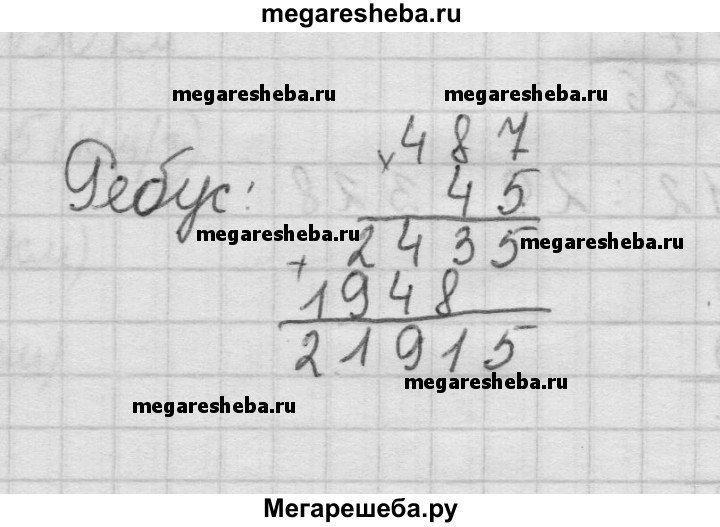 megaresheba.ru
megaresheba.ru megaresheba.ru
× 487
Ребус: 45
megaresheba.ru 2435 megaresheba.ru
+ 1948
21915
megaresheba.ru megaresheba.ru
Мегарешеба.ру